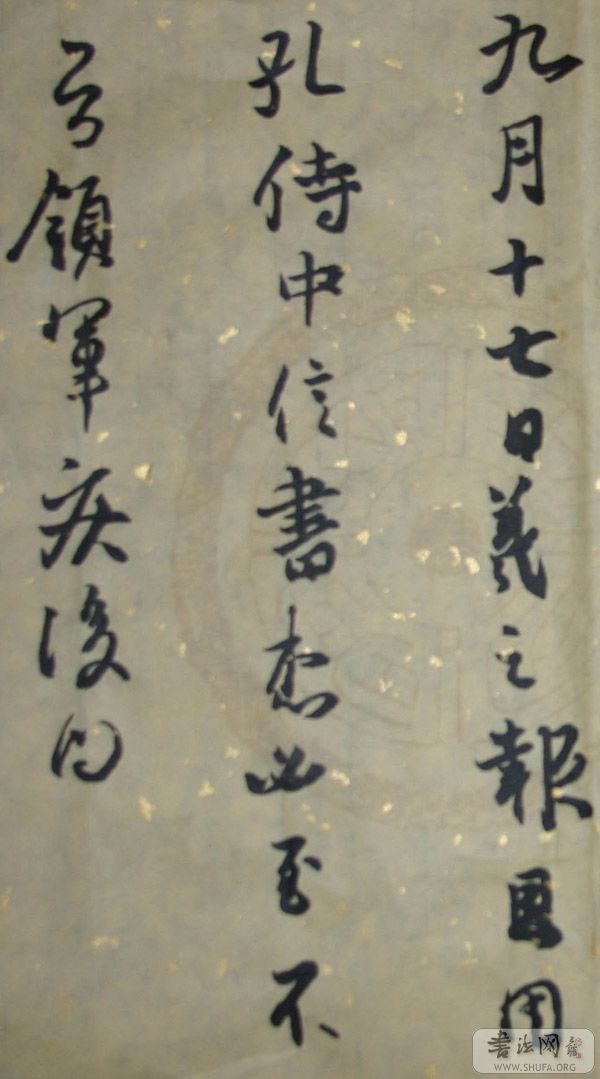 九月十七日羲之報且因
孔侍中信書想必至不
知領軍疾後問
書法网
WWW.SHUFA.ORG